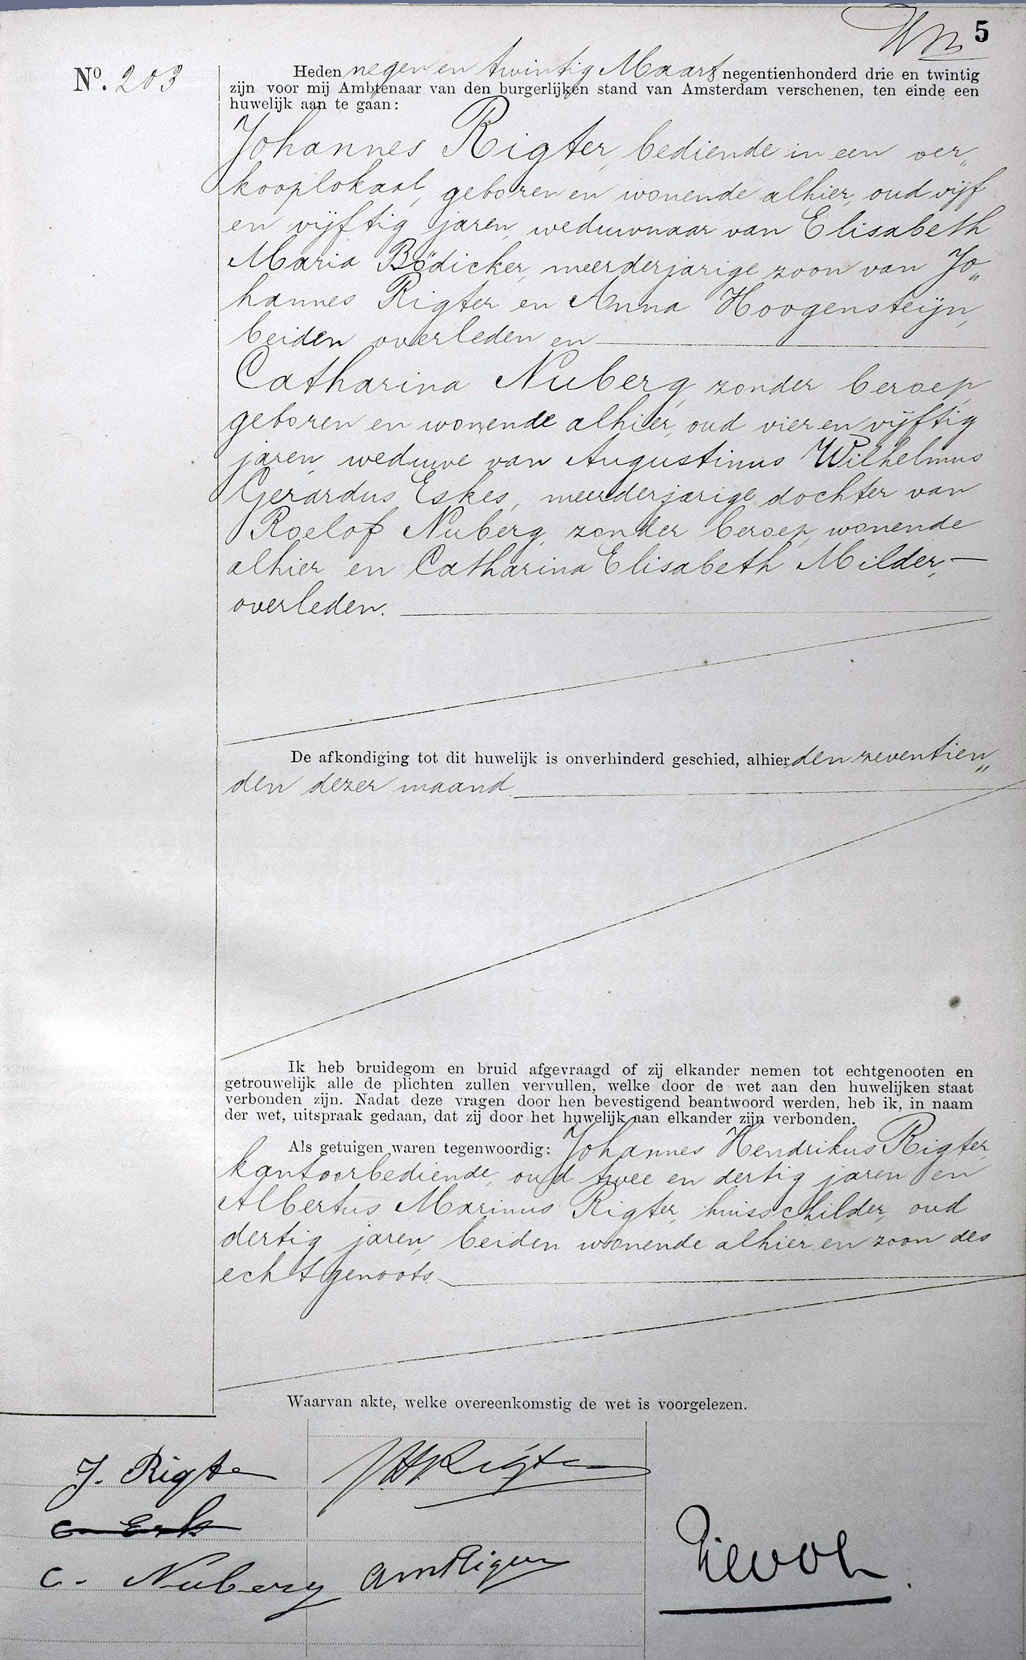 5
Nº. 203
Heden negen en twintig Maart negentienhonderd drie en twintig
zijn voor mij Ambtenaar van den burgerlijken stand van Amsterdam verschenen, ten einde een
huwelijk aan te gaan:
Johannes Rigter, bediende in een ver„
kooplokaal, geboren en wonende alhier, oud vijf
en vijftig jaren, weduwnaar van Elisabeth
Maria Bödicker, meerderjarige zoon van Jo„
hannes Rigter en Anna Hoogensteijn,
beiden overleden en
Catharina Nuberg, zonder beroep,
geboren en wonende alhier, oud vier en vijftig
jaren, weduwe van Augustinus Wilhelmus
Gerardus Eskes, meerderjarige dochter van
Roelof Nuberg, zonder beroep, wonende
alhier en Catharina Elisabeth Milder,
overleden.
De afkondiging tot dit huwelijk is onverhinderd geschied, alhier den zeventien„
den dezer maand
Ik heb bruidegom en bruid afgevraagd of zij elkander nemen tot echtgenooten en
getrouwelijk alle de plichten zullen vervullen, welke door de wet aan den huwelijken staat
verbonden zijn. Nadat deze vragen door hen bevestigend beantwoord werden, heb ik, in naam
der wet, uitspraak gedaan, dat zij door het huwelijk aan elkander zijn verbonden.
Als getuigen waren tegenwoordig: Johannes Hendrikus Rigter,
kantoorbediende, oud twee en dertig jaren en
Albertus Marinus Rigter, huisschilder, oud
dertig jaren, beiden wonende alhier en zoon des
echtgenoots.
Waarvan akte, welke overeenkomstig de wet is voorgelezen.
J. Rigter
JHRigter
C. Nuberg